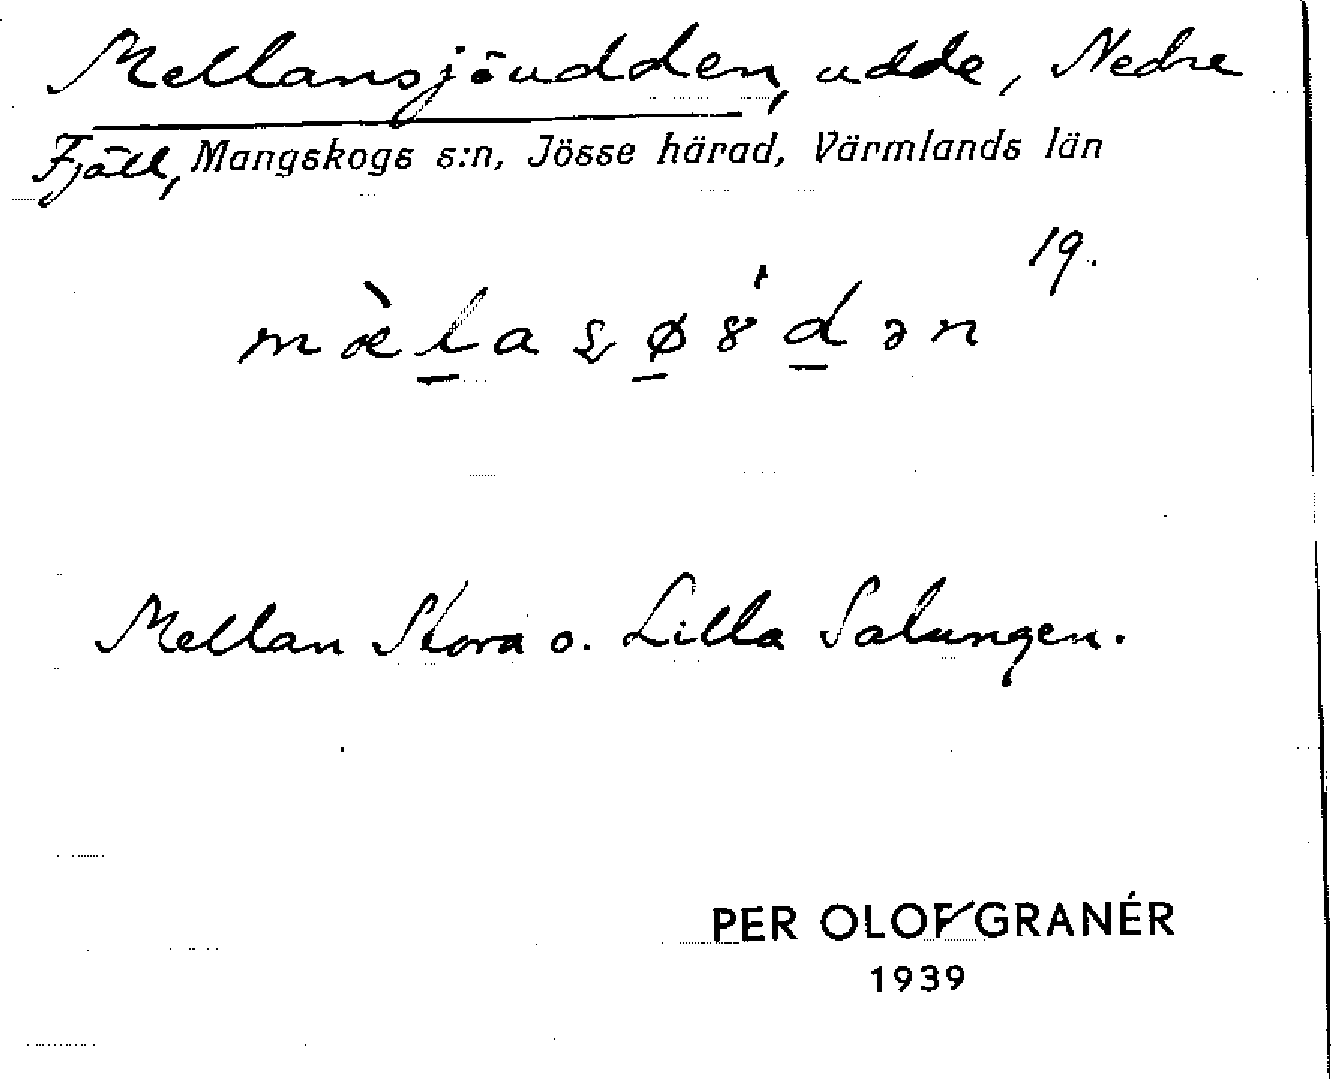 Mellansjöudden, udde, Nedre
Fjäll, Mangskogs s:n, Jösse härad, Värmlands län
19.
Mellan Stora o. Lilla Salungen.
PER OLOF GRANÉR
1939